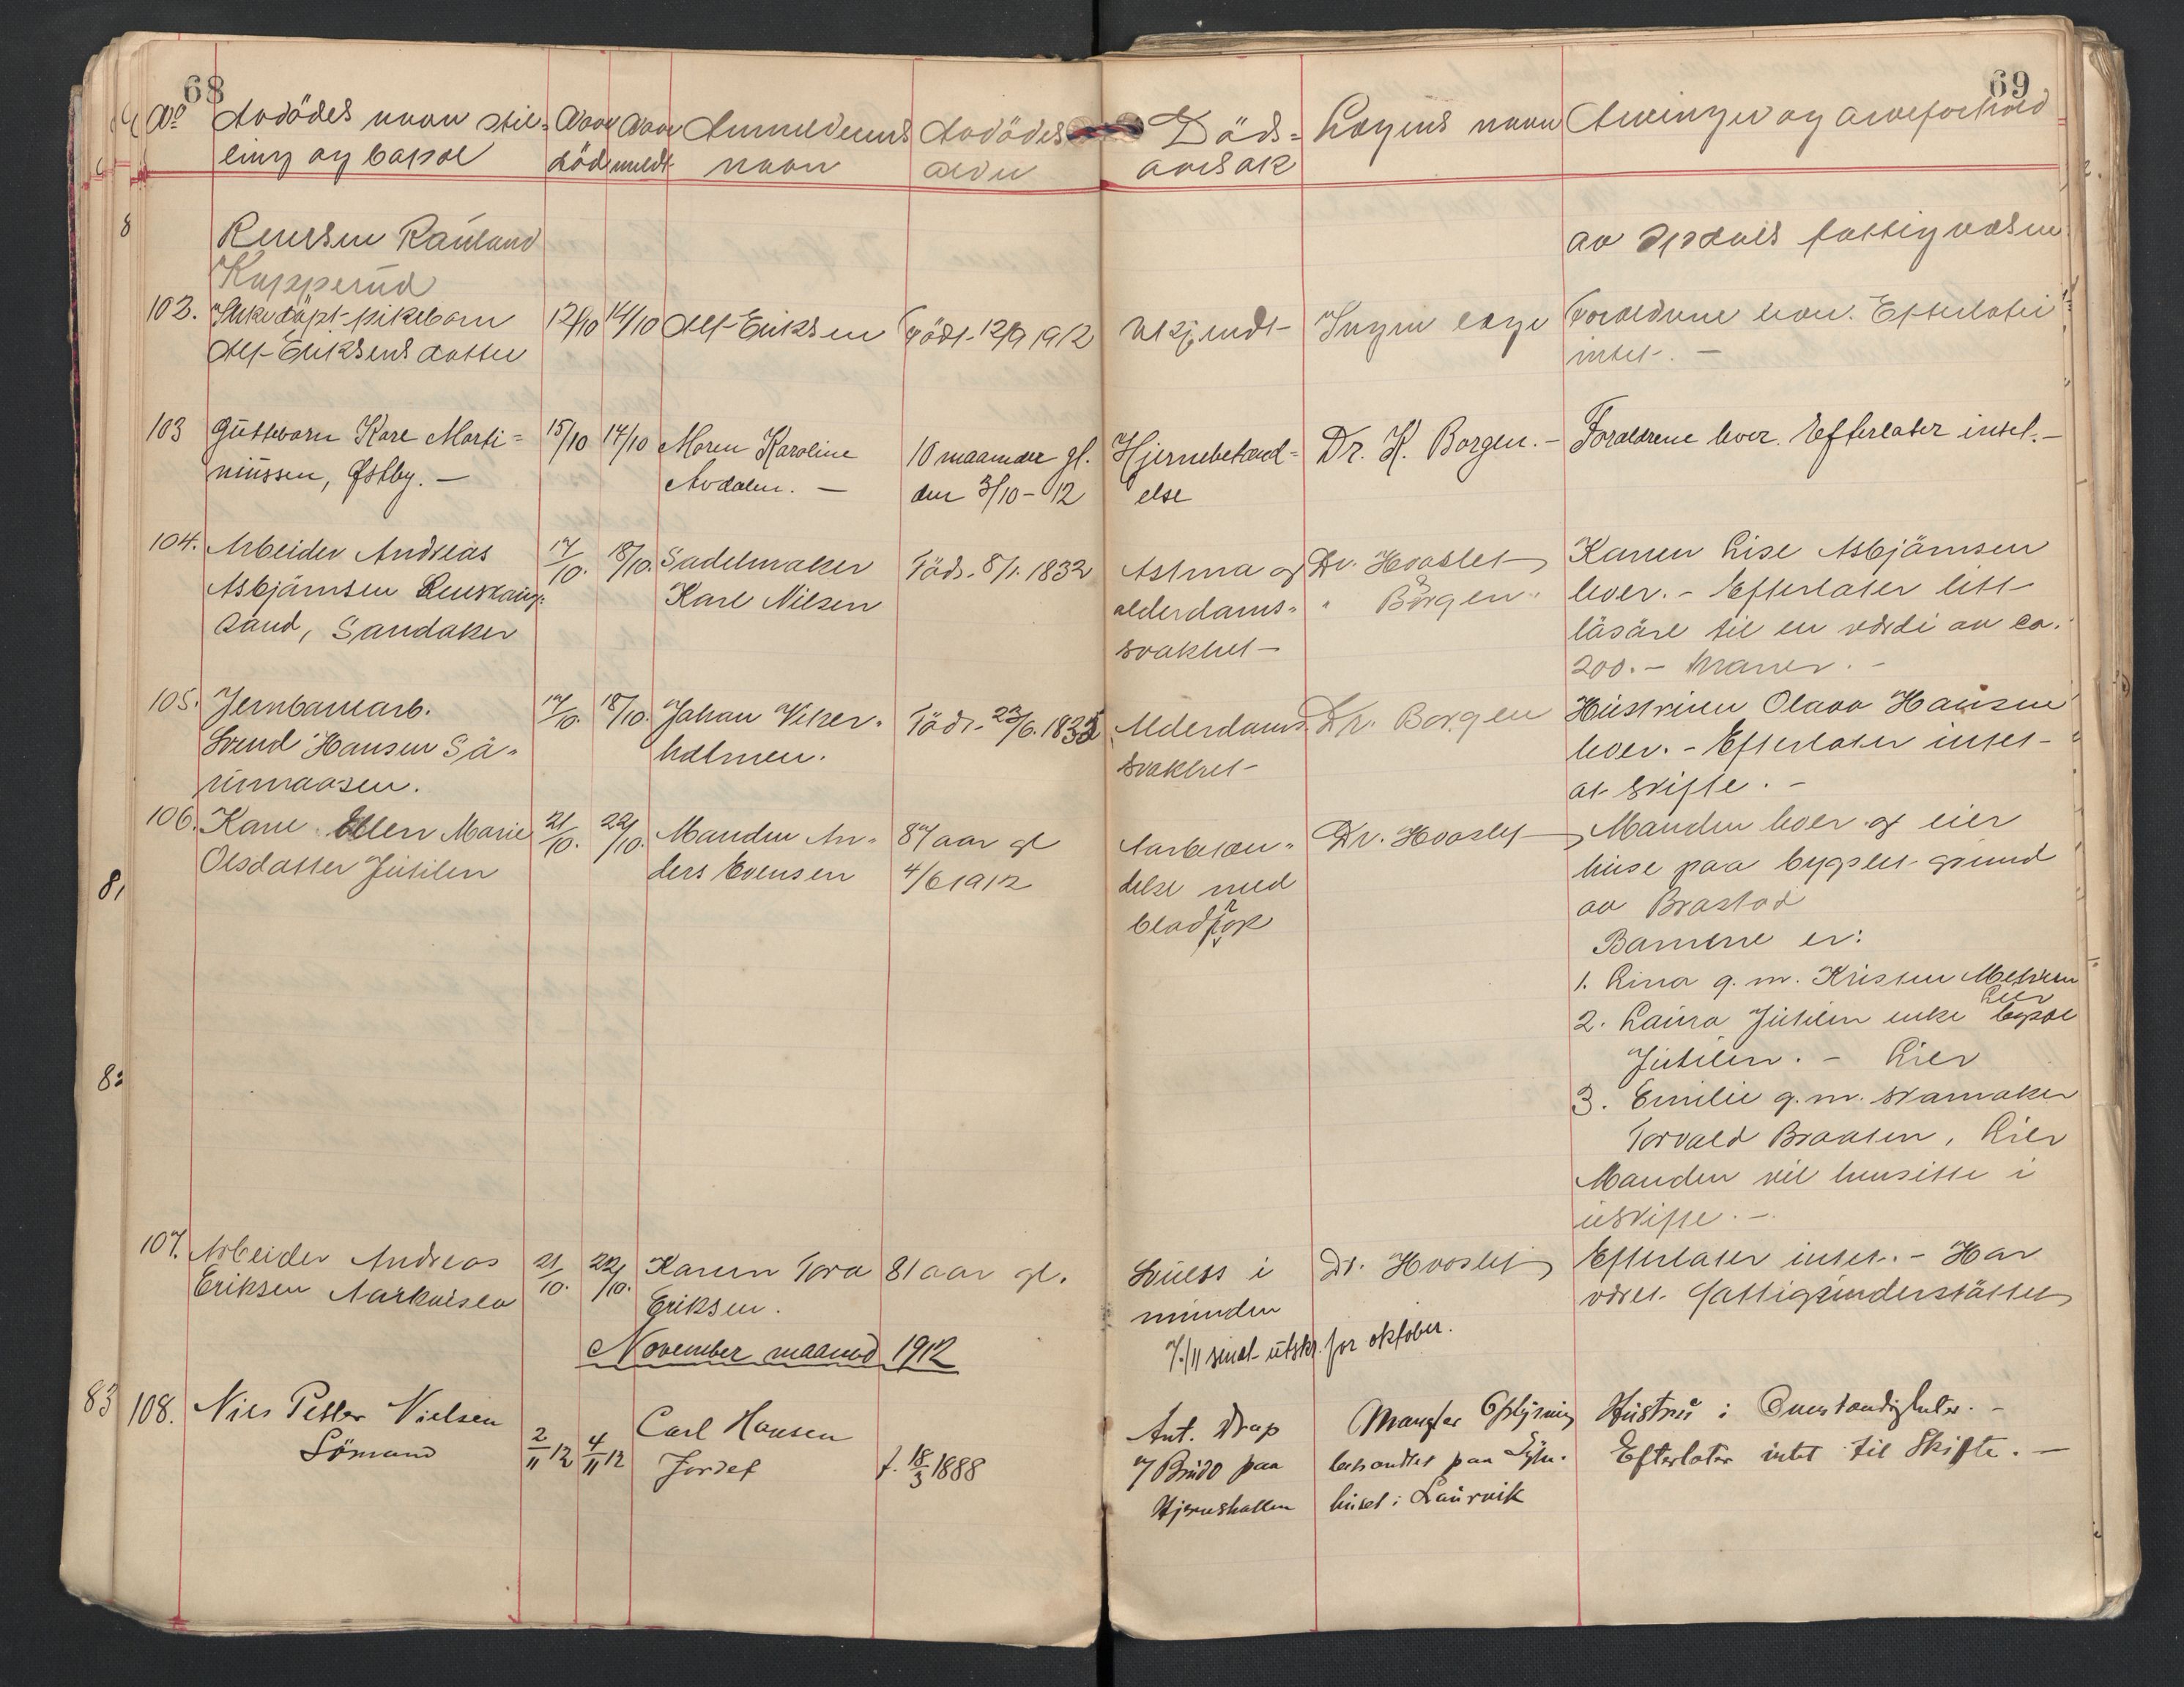 68
69
No Avdödes navn stil-
ling og bopæl
Naar
död
Naar
meldt
Anmelderens
navn
Avdödes
alder
Döds-
aarsak
Lægens navn
Arvinger og arveforhold
Rauland
Kopperud
av Opdals fattigvæsen
102. Ikke döpt pikebarn
Alf Eriksens datter
12/10
14/10
Alf Eriksen
Födt 12/9 1912
Ukjendt
Ingen læge
Foreldrene lever. Efterlater
intet. -
103 Guttebarn Kare Marti=
niussen, Østby. -
15/10
17/10
Moren Karoline
Avdalen. -
10 maaneder gl.
den 3/10 - 12
Hjernebetænd=
else
Dr. K. Borgen. -
Foreldrene lever. Efterlater intet. -
104. Arbeider Andreas
Asbjörnsen
sand, Sandaker
17/10.
18/10.
Sadelmaker
Karl Nilsen
Föd. 8/1. 1832
Astma og
alderdoms-
svakhet -
Dr. Hovslet
" Borgen "
Karren Lise Asbjörnsen
lever. - Efterlater litt
lösöre til en værdi av ca.
200. - kroner. -
105. Jernbanearb.
Svend Hansen Sö-
17/10.
18/10.
Johan
holmen.
Föd. 23/6. 1832
Alderdoms
svakhet
Dr. Borgen
Hustruen Olava Hansen
lever. - Efterlater intet
at skifte. -
106. Kare Ellen Marie
Olsdatter Jutilen
21/10.
22/10.
Manden An-
ders Evensen
87 aar gl
4/6 1912
delse med
Dr. Hovslet
Manden lever og eier
huse paa bygslet grund
av Brastad
Barnene er:
1. Lina g. m. Kristen
Lier
2. Laura Jutilen enke bopæl
Jutilen. - Lier
3. Emilie g. m. skomaker
Torvald Braaten, Lier
Manden vil hensitte i
uskifte. -
107. Arbeider Andreas
Eriksen
21/10.
22/10.
Karen Tora
Eriksen.
81 aar gl.
Kulss i
munden
Dr. Hovslet
Efterlater intet. - Har
været fattigunderstöttet
November maaned 1912
7/11 sendt utskr. for oktober.
83
108. Nils Petter Nielsen
Sömand
2/11 12
4/11 12
Carl Hansen
Jordet
f. 18/3 1888
Ant. Drap
7 Brudd paa
Hjerneskallen
Mangler Oplysning
behandlet paa Syke-
huset i Laurvik
Hustru i Omstændigheter. -
Efterlater intet til Skifte. -